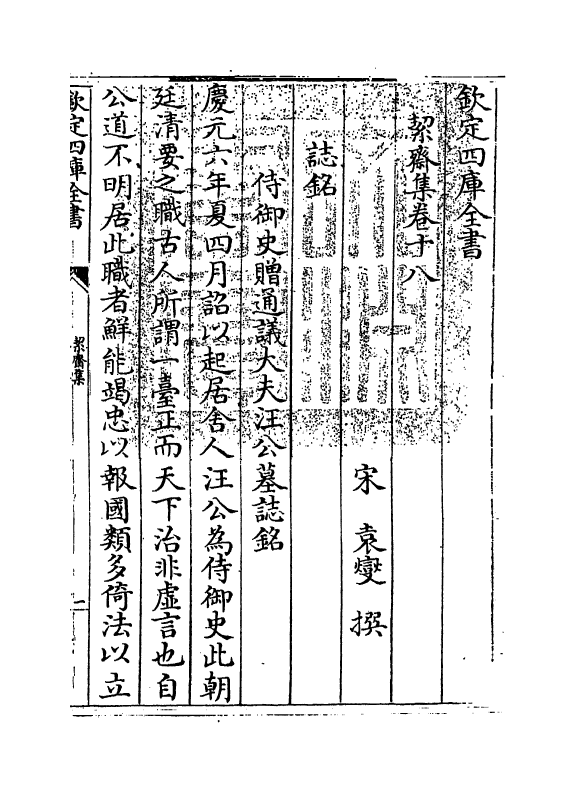 欽定四庫全書
絜齋集卷十八
宋 袁燮 撰
誌銘
侍御史贈通議大夫汪公墓誌銘
慶元六年夏四月詔以起居舍人汪公為侍御史此朝
廷清要之職古人所謂一臺正而天下治非虛言也自
公道不明居此職者鮮能竭忠以報國類多倚法以立
欽定四庫全書
絜齋集
一